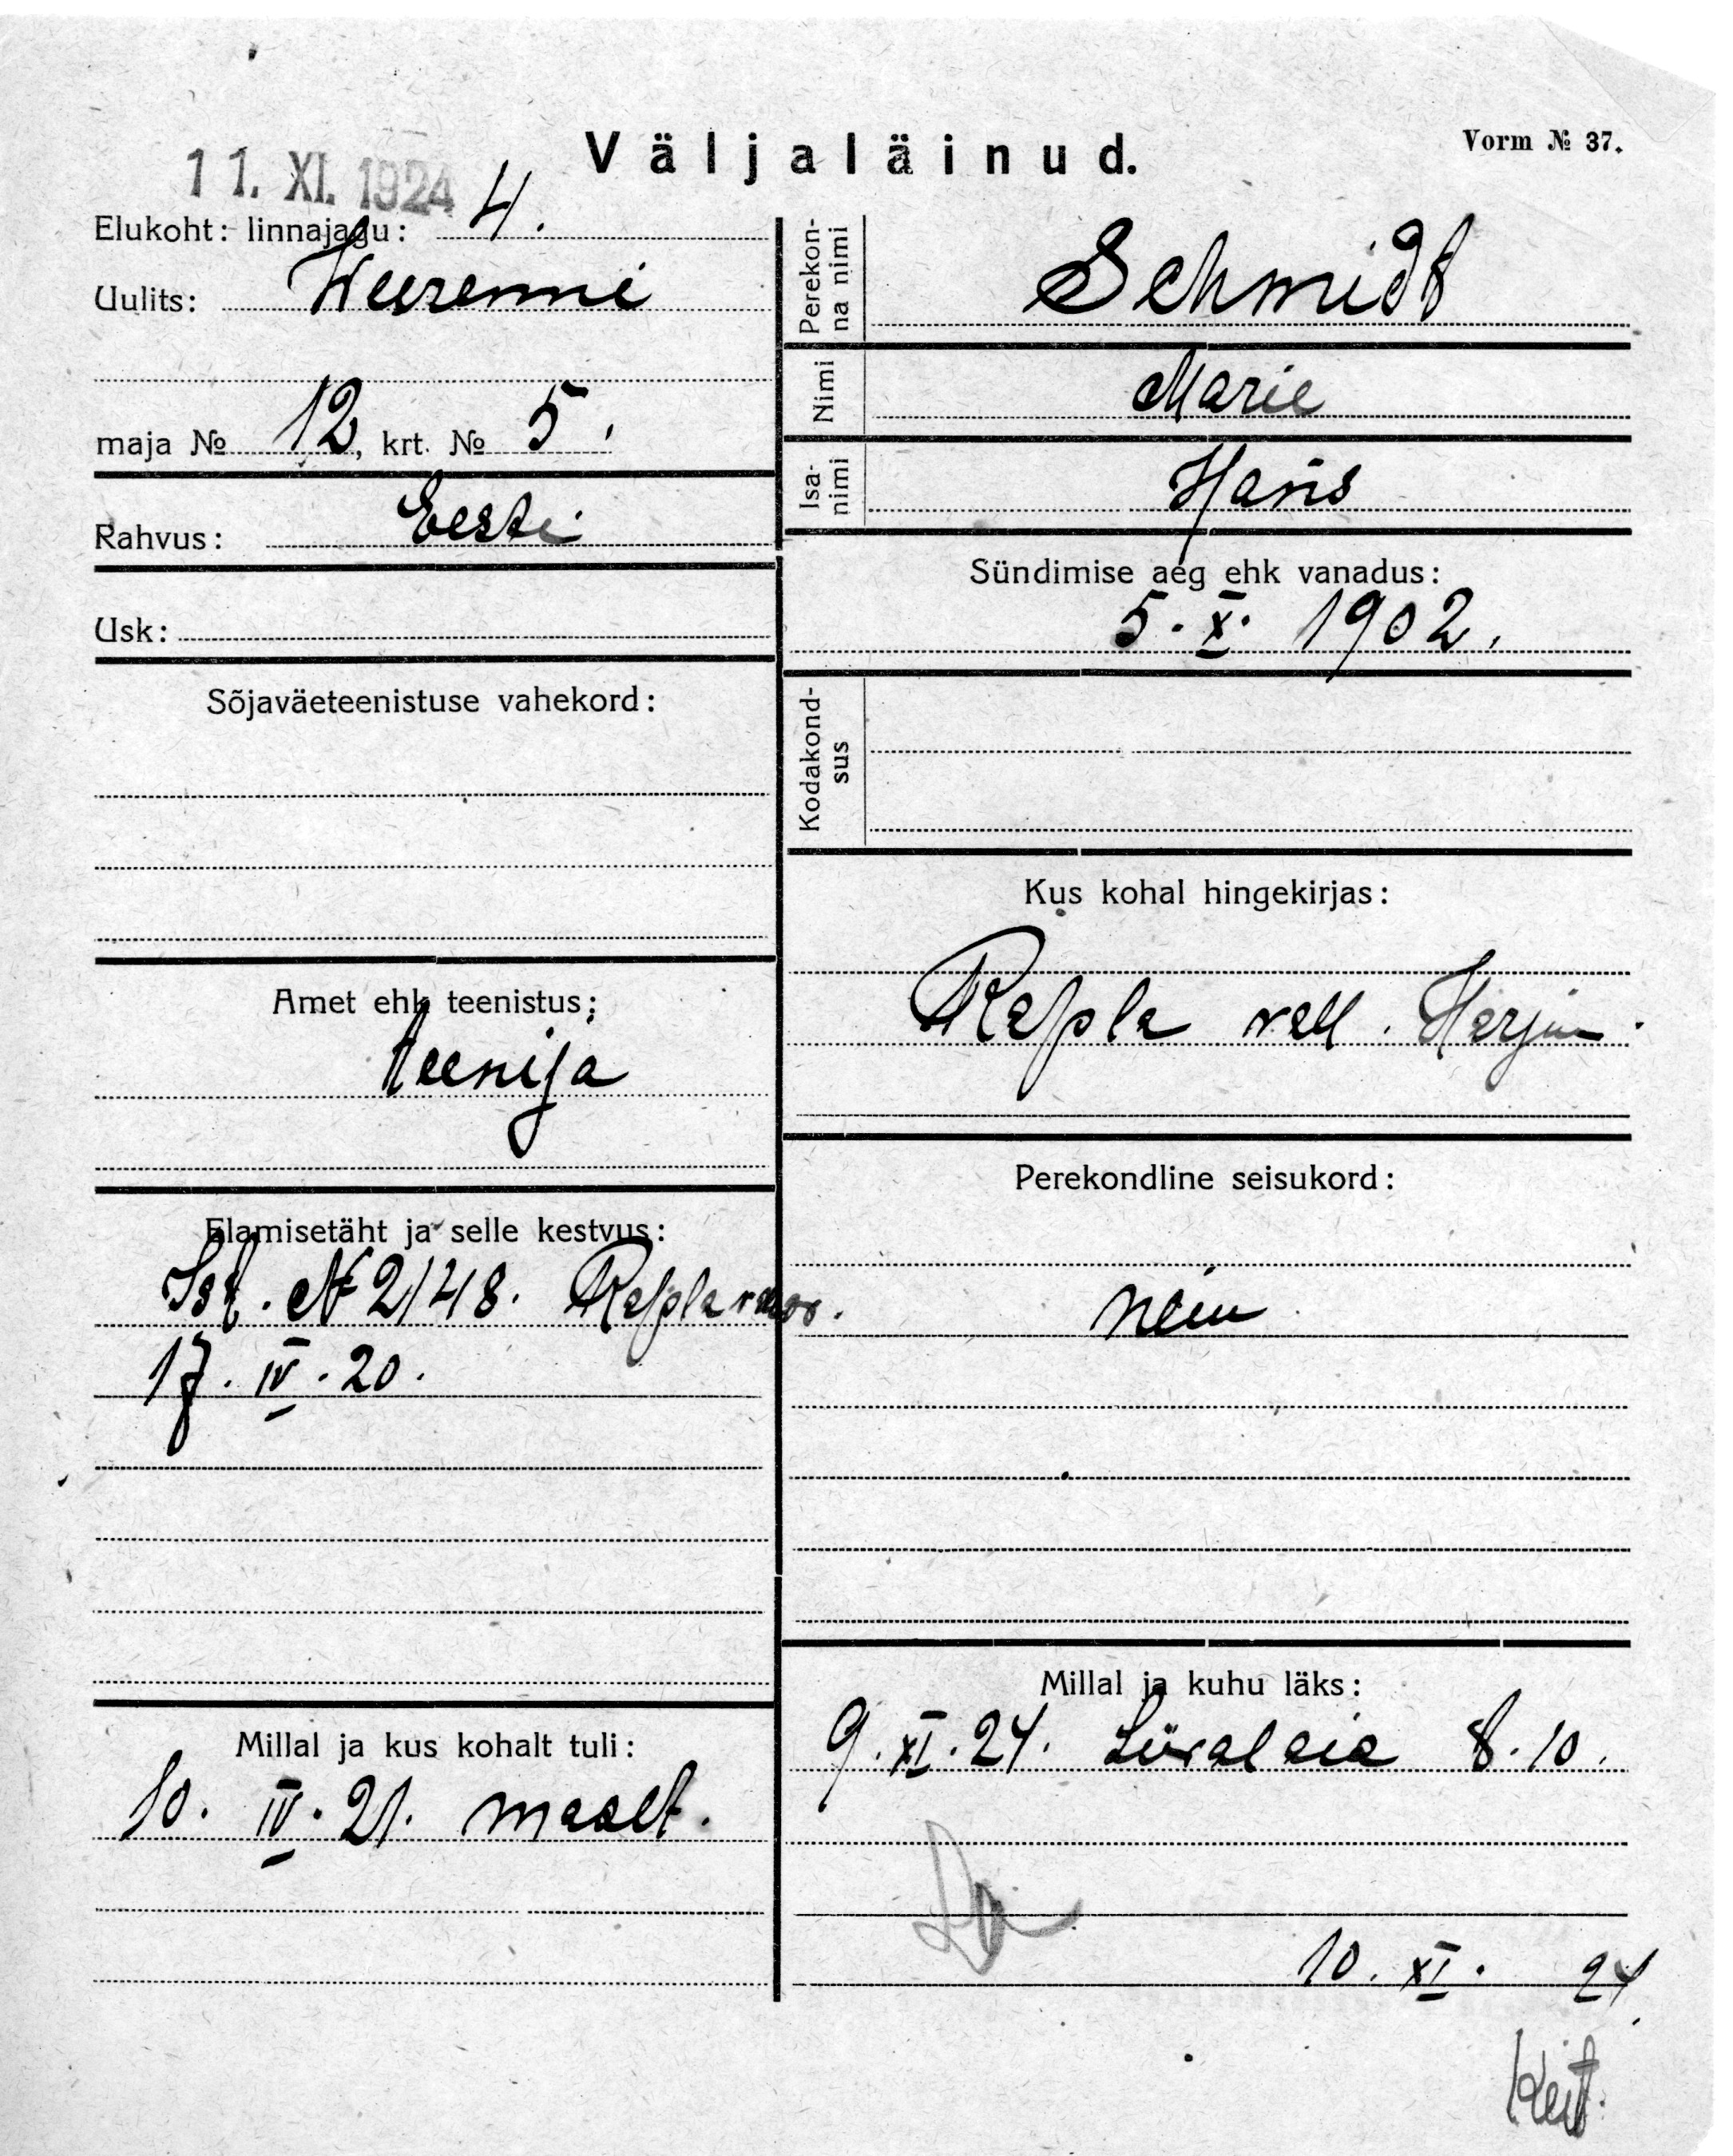 Väljaläinud.
Vorm № 37.
11. XI. 1924
Elukoht: linnajagu: 4.
Uulits: Weerenni
maja № 12, krt. № 5.
Rahvus: Eesti
Usk:
Sõjaväeteenistuse vahekord:
Amet ehk teenistus:
teenija
Elamisetäht ja selle kestvus:
Ist. № 2148. Rapla
17. IV. 20.
Millal ja kus kohalt tuli:
10. IV. 21. maalt.
Perekon-
na nimi
Schmidt
Nimi
Marie
Isa-
nimi
Hans
Sündimise aeg ehk vanadus:
5. X. 1902.
Kodakond-
sus
Kus kohal hingekirjas:
Rapla vall. Harjum.
Perekondline seisukord:
neiu
Millal ja kuhu läks:
9. XI. 24. Liivalaia 8.10.
10. XI. 24